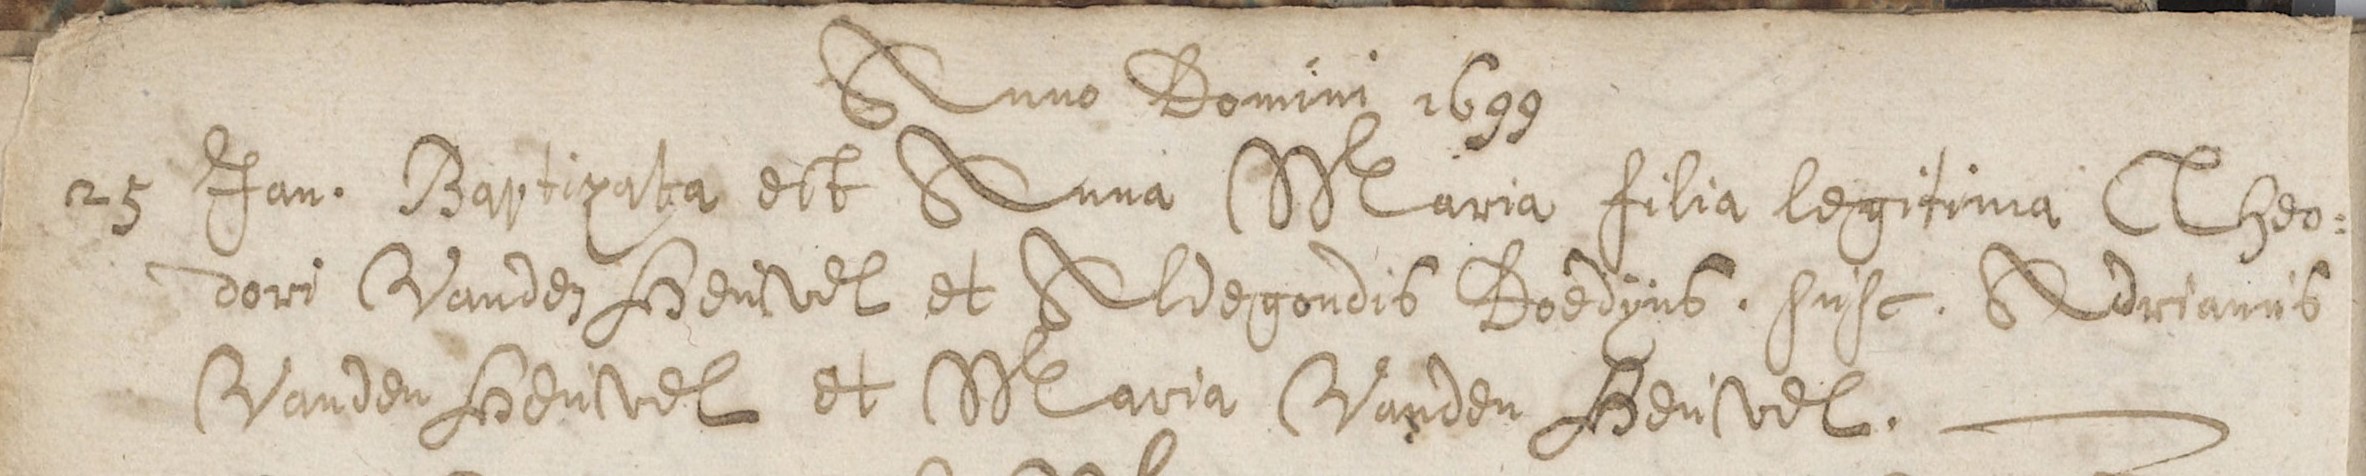 Anno Domini 1699
25 Jan. Baptizata est Anna Maria filia legitima Theo:
dori Vanden Heuvel et Aldegondis Boedijns. susc. Adrianus
Vanden Heuvel et Maria Vanden Heuvel.